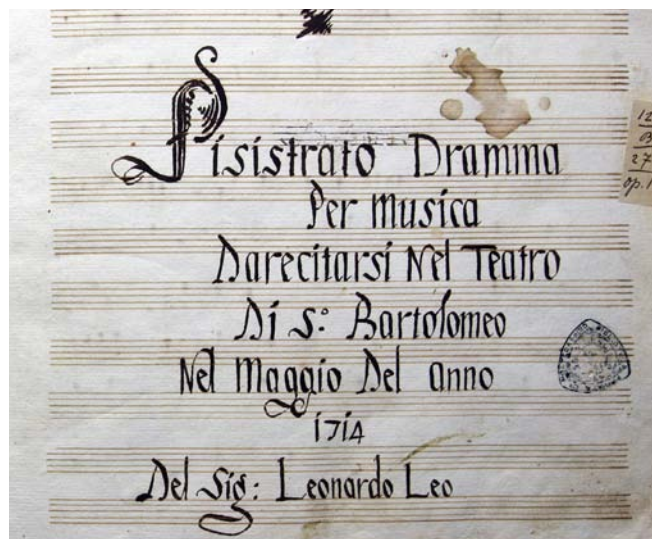 Pisistrato Dramma
Per Musica
Darecitarsi Nel Teatro
Di S.º Bartolomeo
Nel Maggio Del Anno
1714
Del Sig: Leonardo Leo
12